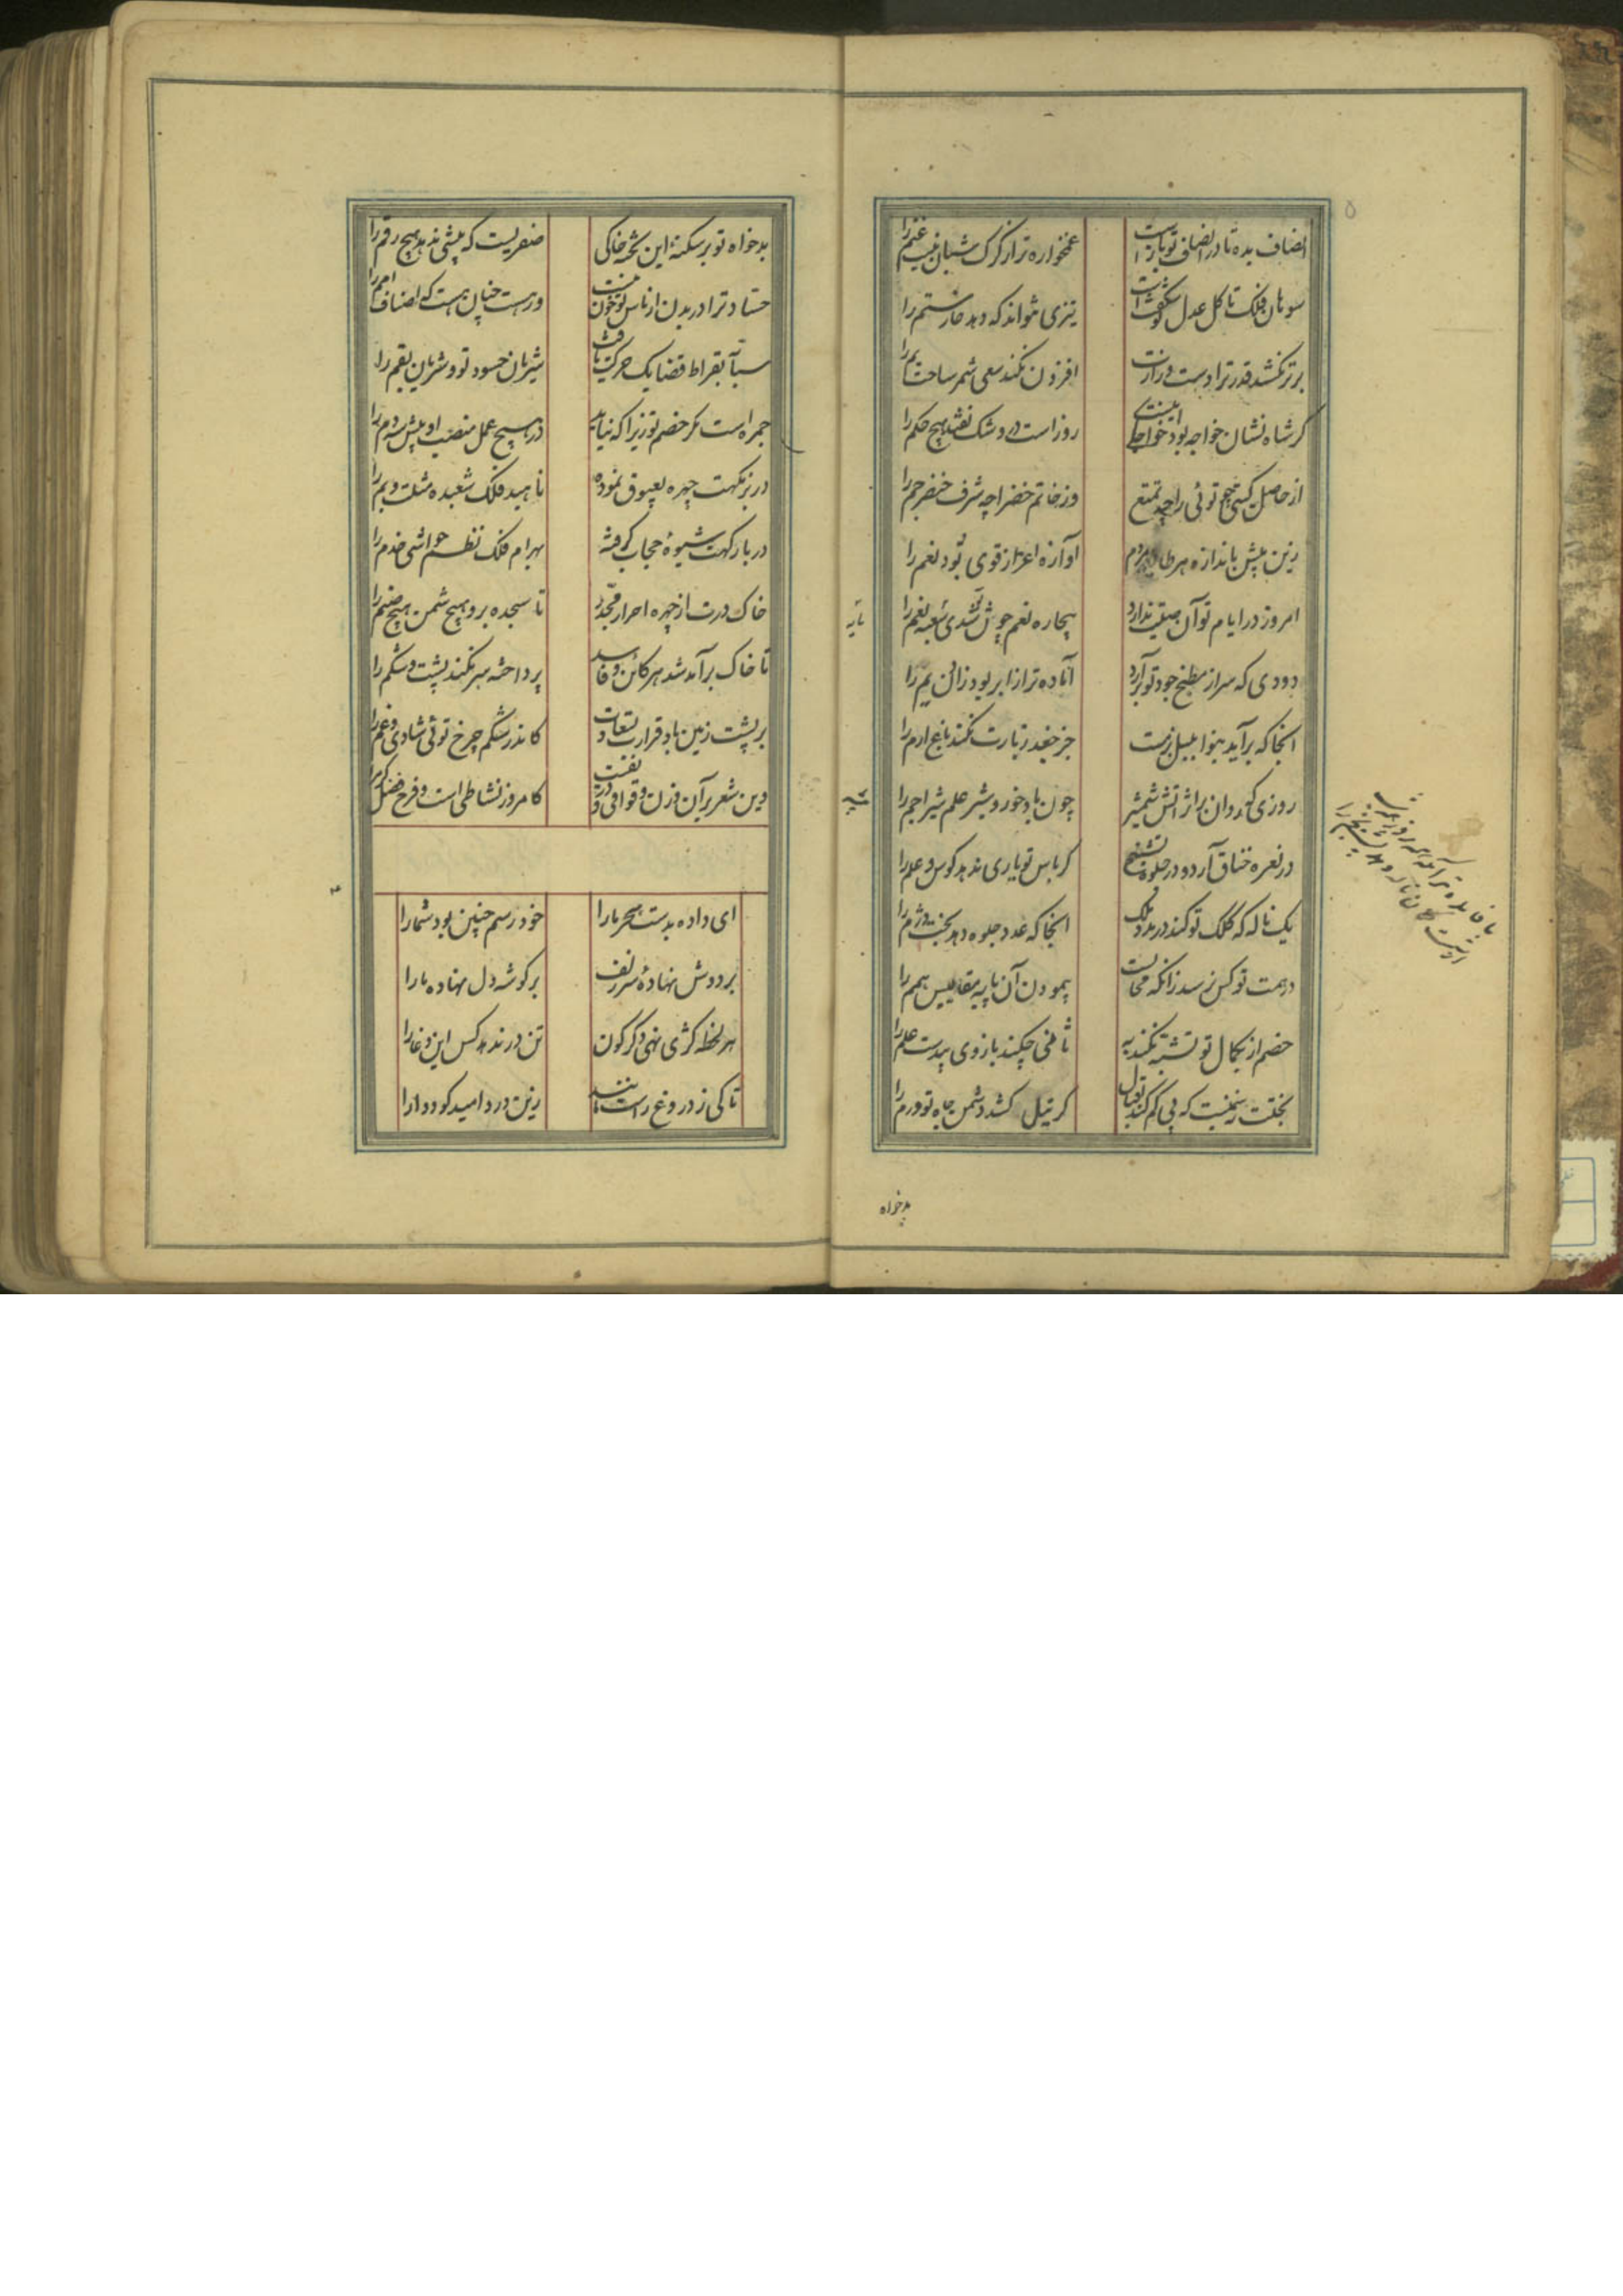 انصاف بده تا در انصاف تو بازست
غمخواره تر از گرگ شبان نیست غنم را
سوهان فلک تا گل عدل تو شکفتست
تیزی نتواند که دهد خار ستم را
برتر نکشد قدر ترا دست وزارت
افزون نکند سعی شمر ساحت یم را
گر شاه نشان خواجه بود خواجگی اینست
روز است در و شک نفتد هیچ حکم را
از حاصل گیتی چو توئی را چه تمتع
وز خاتم خضرا چه شرف خنصر جم را
زین پیش باندازه هر طایفه مردم
آوازه اعزاز قوی بود نعم را
امروز در ایام تو آن صیت ندارد
بیچاره نعم چون تو شدی شعبه نعم را
دودی که سر از مطبخ جود تو برآرد
آماده تر از ابر بود زادن یم را
آنجا که برآید بنوا بلبل بزمت
جز جغد زیارت نکند باغ ارم را
روزی که دوان بر اثر آتش شمشیر
چون باد خورد شیر علم شیر اجم را
در نعره خناق آرد و در جلوه تشنج
گر باس تو یاری ندهد کوس و علم را
یک ناله که کلک تو کند در مدد ملک
آنجا که عدد جلوه دهد بخت دژم را
در همت تو کس نرسد زانکه محالست
پیمودن آن پایه مقاییس همم را
خصم ار بکمال تو تشبه نکند به
تا می چکند بازوی بیدست علم را
بختت نه نهنگیست که پی گم کند اقبال
گر نیل کشد دشمن جاه تو ورم را
بدخواه
بدخواه تو بر سکنه این تخته خاکی
صفریست که بیشی ندهد هیچ رقم را
حساد ترا در بدن از باس تو خون نیست
ور هست چنان هست که اصناف امم را
سبابه بقراط قضا یک حرکت یافت
شریان حسود تو و شریان بقم را
جمره است مگر خصم تو زیرا که نیاید
در هیچ عمل منصب او بیش سه دم را
در بزمگهت چهره بعیوق نموده
ناهید فلک شعبده مثلث و بم را
در بارگهت شیوه حجاب گرفته
بهرام فلک نظم حواشی خدم را
خاک درت از چهره احرار مجدر
تا سجده برد هیچ شمن هیچ صنم را
تا خاک برآمد شد هر کائن و فاسد
پرداخته می نکند پشت و شکم را
بر پشت زمین باد قرارت بسعادت
کاندر شکم چرخ توئی شادی و غم را
وین شعر بر آن وزن و قوافی و ردیفست
کامروز نشاطی است و فرح فضل و کرم را
ای داده بدست هجر ما را
خود رسم چنین بود شما را
بر دوش نهاده سر زلف
بر گوشه دل نهاده ما را
هر لحظه کژی نهی دگرگون
تن در ندهد کس این دغا را
تا کی ز دروغ راست مانند
زین درد امید کو دوا را